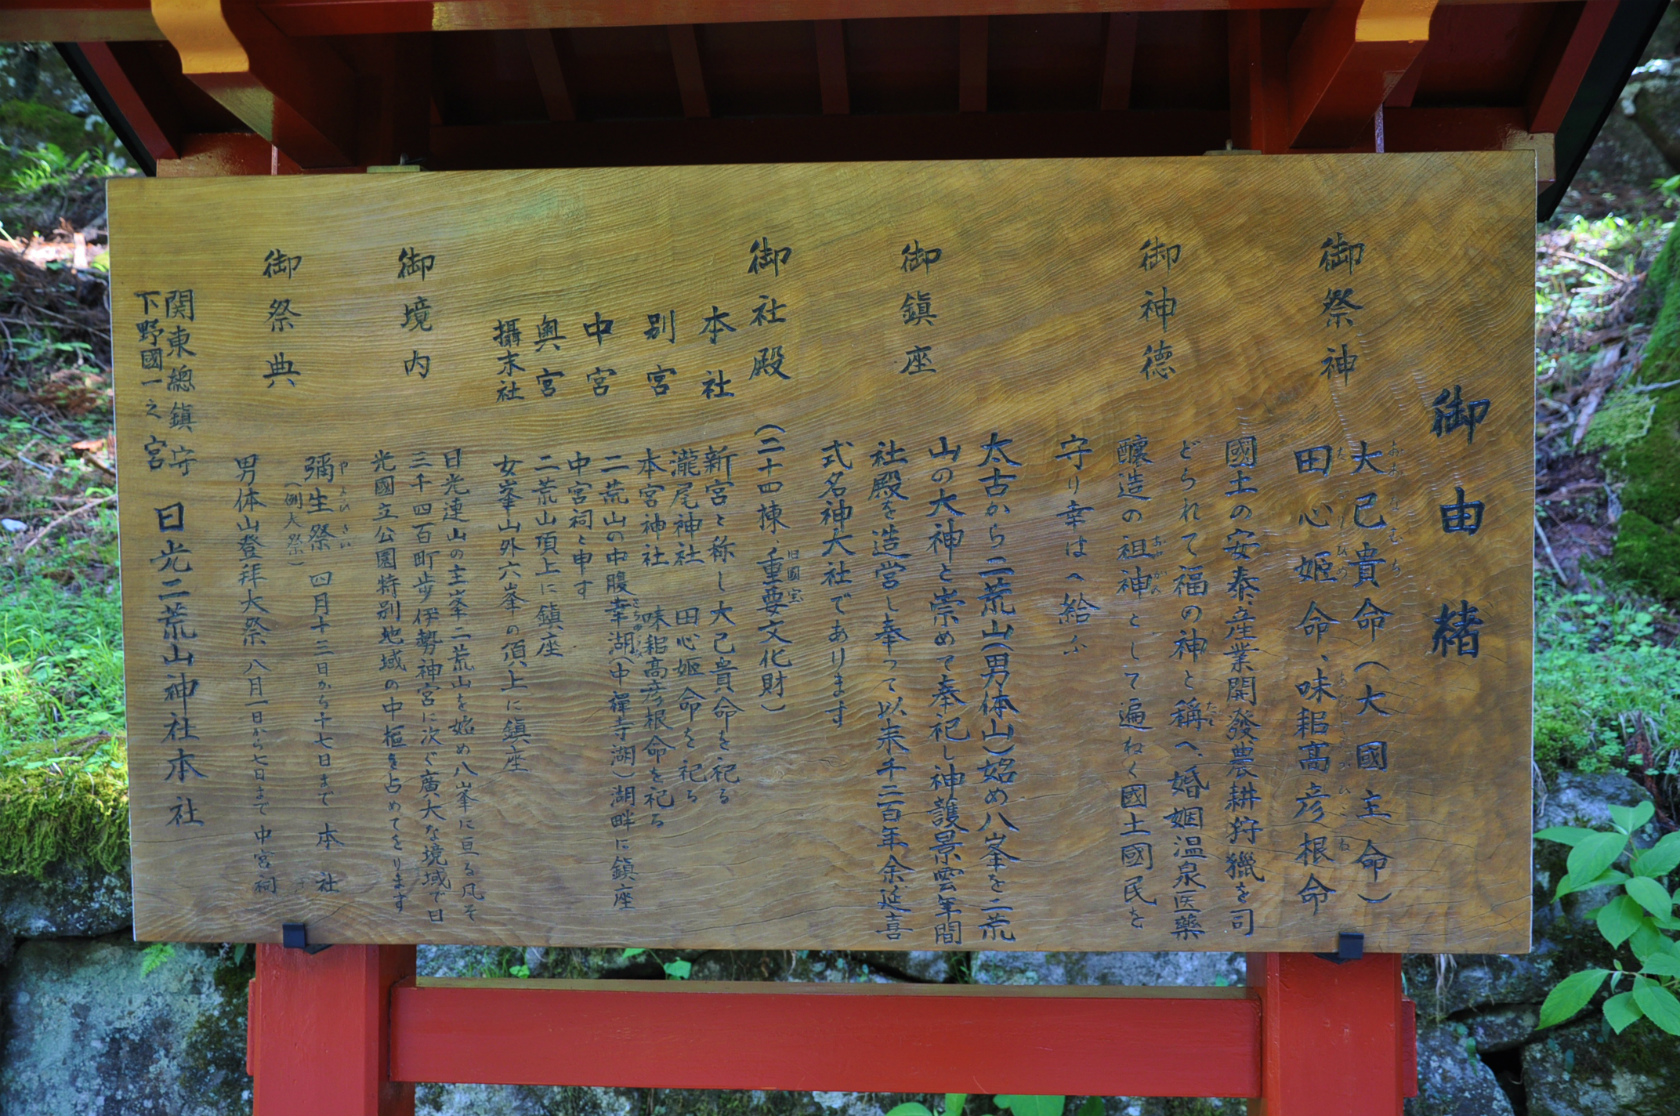 御由緒
御祭神
大己貴命(大國主命)
田心姫命、味耜高彦根命
御神徳
國土の安泰、産業開發農耕狩獵を司
どられて福の神と稱へ、婚姻温泉医藥
醸造の祖神として遍ねく國土國民を
守り幸はへ給ふ
御鎮座
太古から二荒山(男体山)始め八峯を二荒
山の大神と崇めて奉祀し神護景雲年間
社殿を造営し奉って以来千二百年余延喜
式名神大社であります
御社殿
(二十四棟、重要文化財)
旧國宝
本社
新宮と称し大己貴命を祀る
別宮
瀧尾神社 田心姫命を祀る
本宮神社 味耜高彦根命を祀る
中宮
二荒山の中腹幸湖(中禪寺湖)湖畔に鎮座
中宮祠と申す
奥宮
二荒山頂上に鎮座
攝末社
女峯山外六峯の頂上に鎮座
御境内
日光連山の主峯二荒山を始め八峯に亘る凡そ
三千四百町歩伊勢神宮に次ぐ廣大な境域で日
光國立公園特別地域の中枢を占めてをります
御祭典
彌生祭 四月十三日から十七日まで 本社
やよいさい
(例大祭)
男体山登拜大祭 八月一日から七日まで 中宮祠
関東總鎮守
下野國一之宮
日光二荒山神社本社